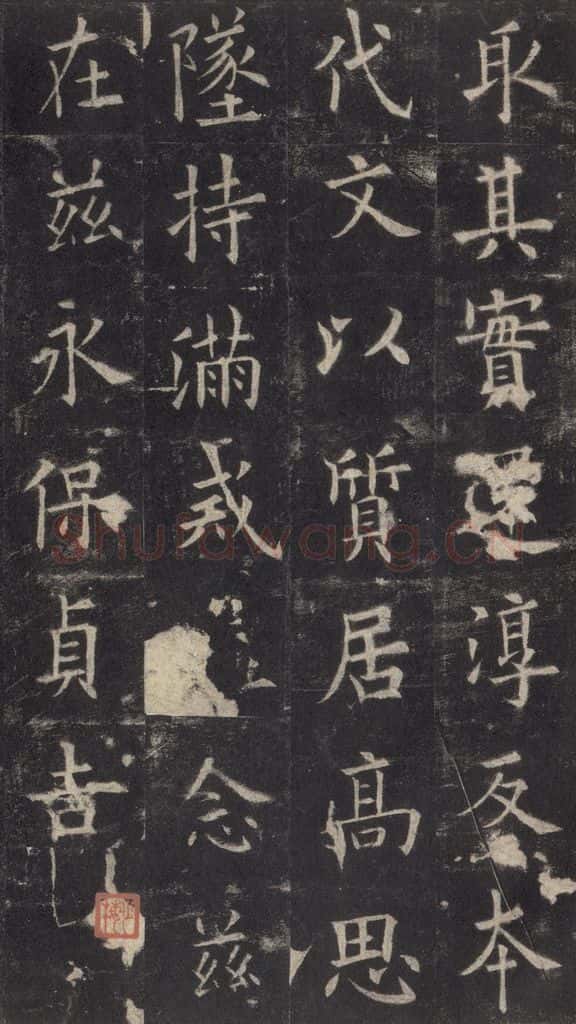 取其實還淳反本
代文以質居高思
墜持滿戒念兹
在兹永保貞吉
Shufawang.CN